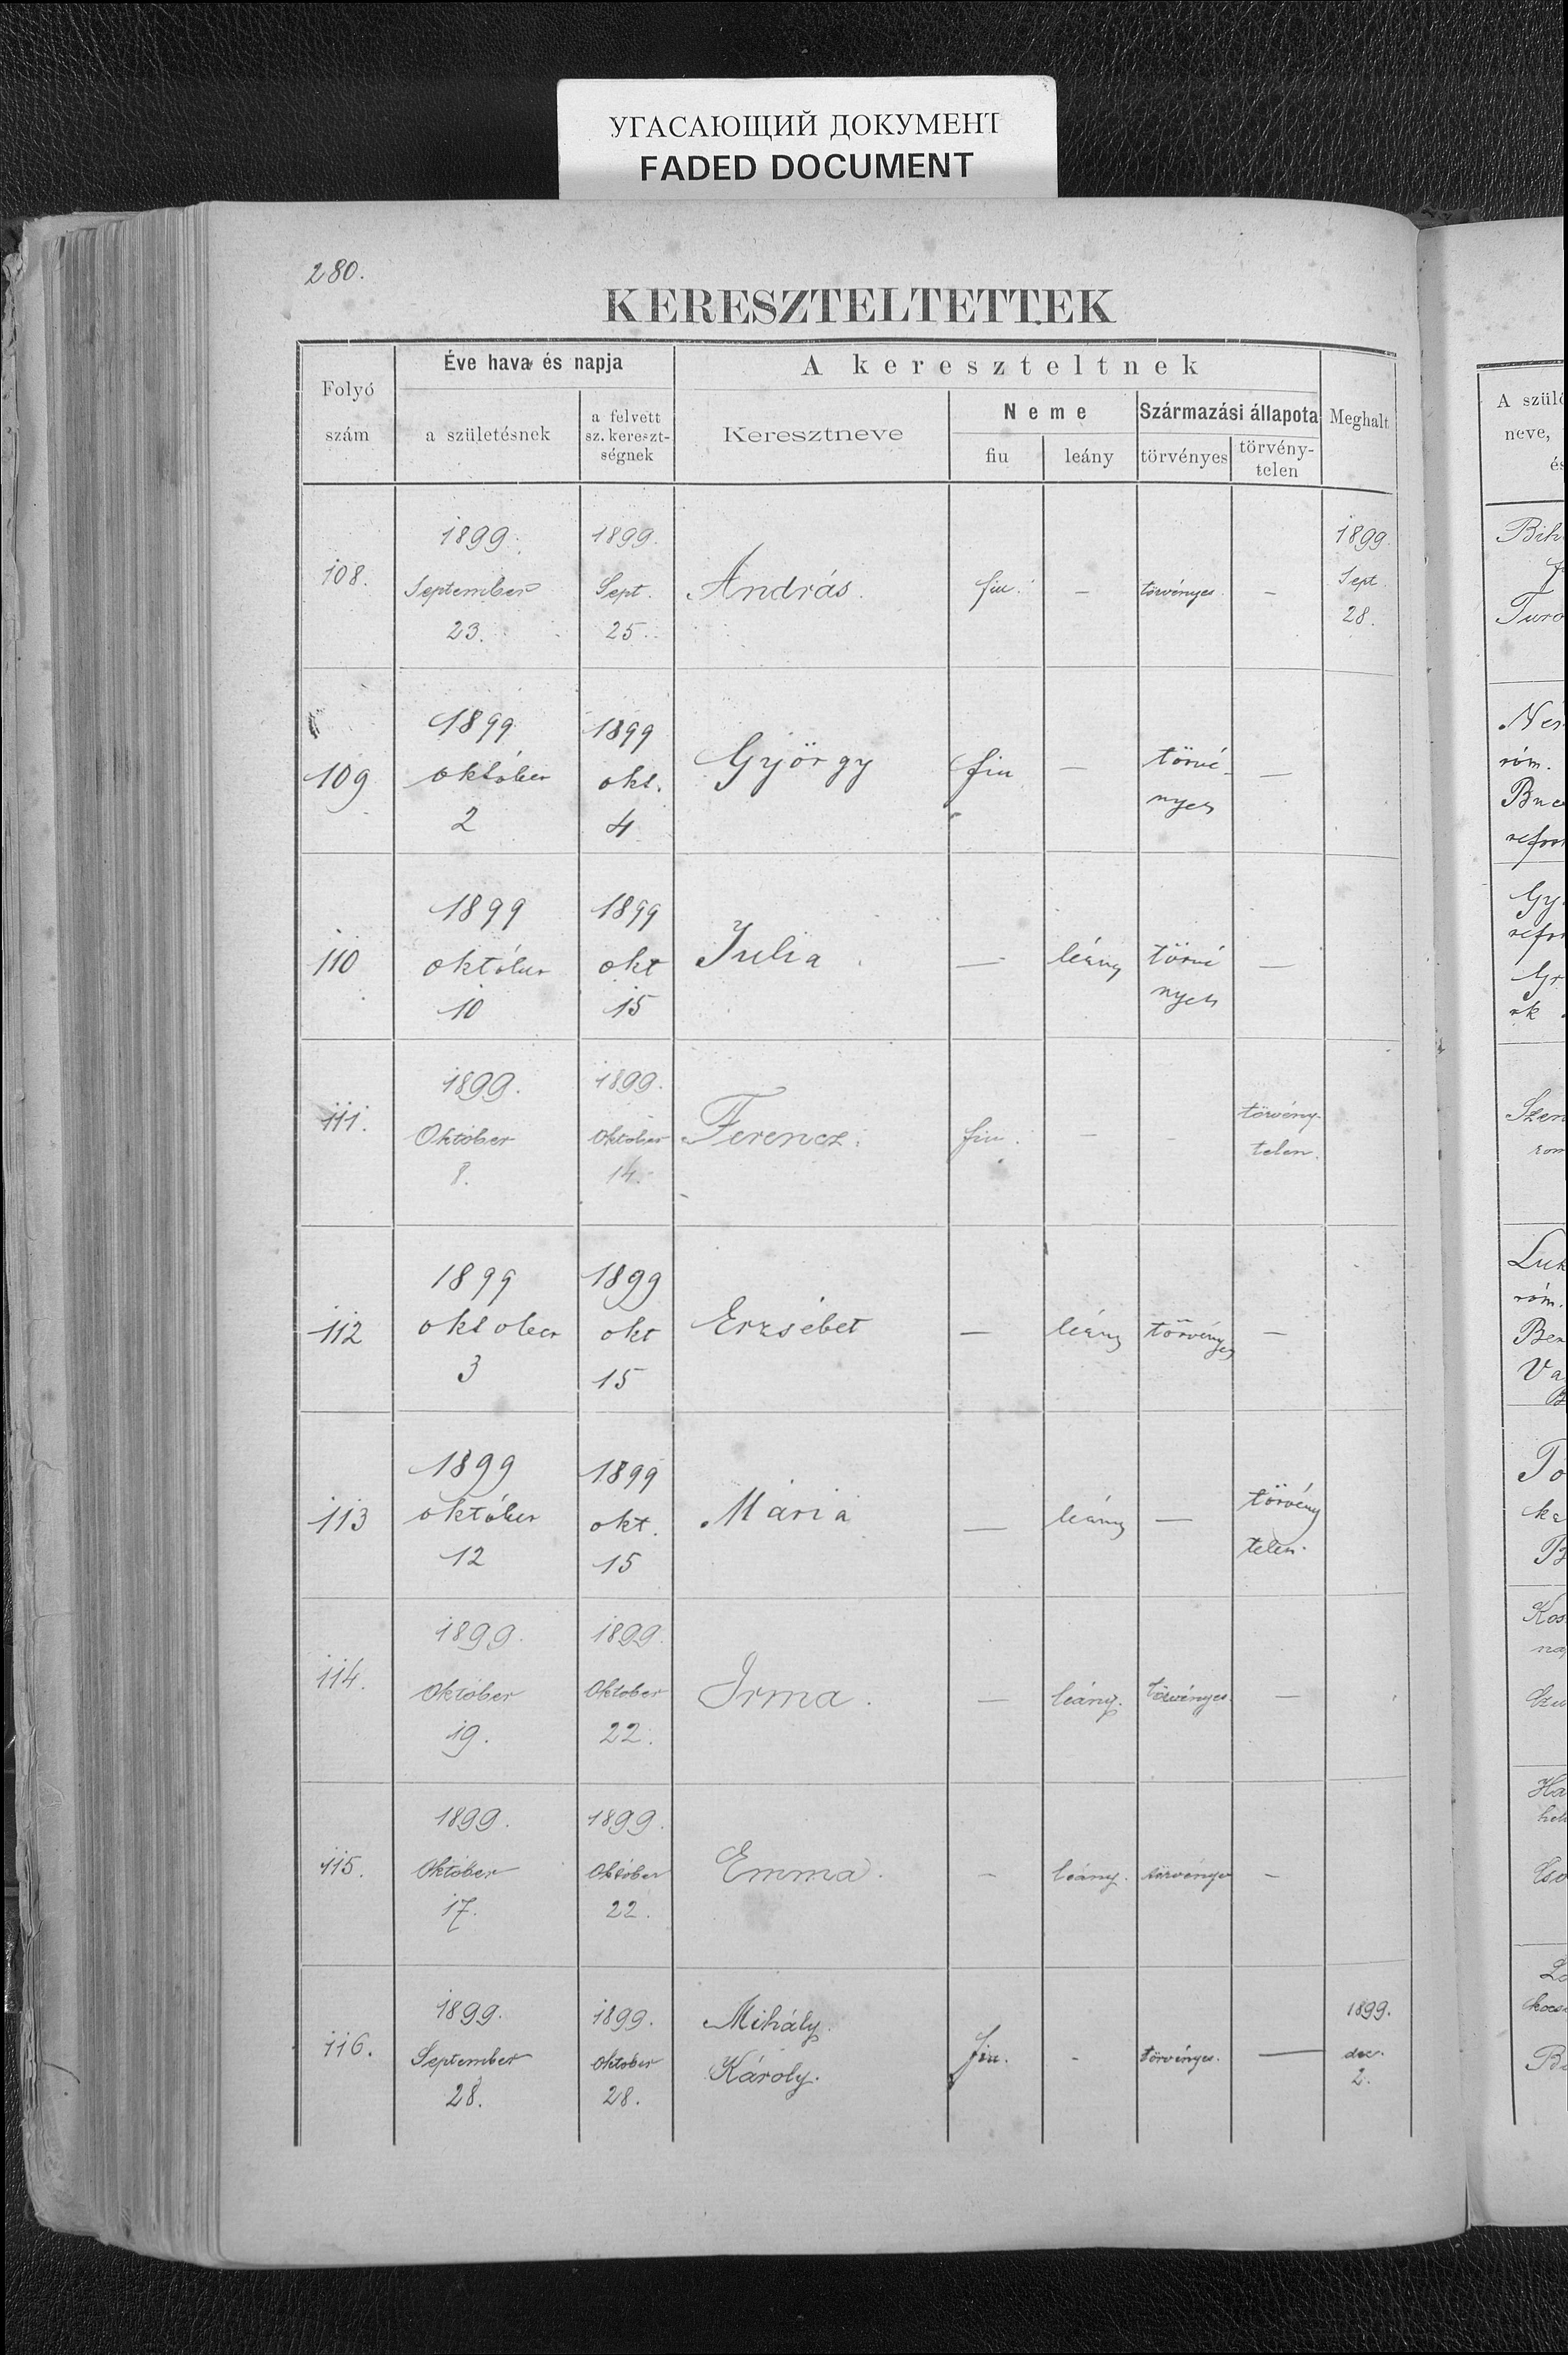 УГАСАЮЩИЙ ДОКУМЕНТ
FADED DOCUMENT
280.
KERESZTELTETTEK
Folyó szám
Éve hava és napja
a születésnek
a felvett sz. kereszt-ségnek
A kereszteltnek
Keresztneve
Neme
fiu
leány
Származási állapota
törvényes
törvény-telen
Meghalt
108. 1899. September 23. 1899. Sept. 25. András. fiu. – törvényes. – 1899. Sept. 28.
109 1899 október 2 1899 okt. 4 György fiu — törvé-nyes —
110 1899 október 10 1899 okt 15 Julia — leány törvé nyes —
111. 1899. Október 8. 1899. Október 14. Ferencz. fiu. – – törvény-telen.
112 1899 oktober 3 1899 okt 15 Erzsébet — leány törvényes —
113 1899 október 12 1899 okt. 15 Mária — leány — törvény telen.
114. 1899. Október 19. 1899. Október 22. Irma. — leány. törvényes. —
115. 1899. Október 17. 1899. Október 22. Emma. – leány. törvényes –
116. 1899. September 28. 1899. Október 28. Mihály. Károly. fiu. - törvényes. — 1899. dec. 2.
A szül
neve,
és
Bih
Turo
róm.
refor
Gy
refor
Gr
Szen
rom
Luk
róm.
Ber
Va
To
Kos
Ha